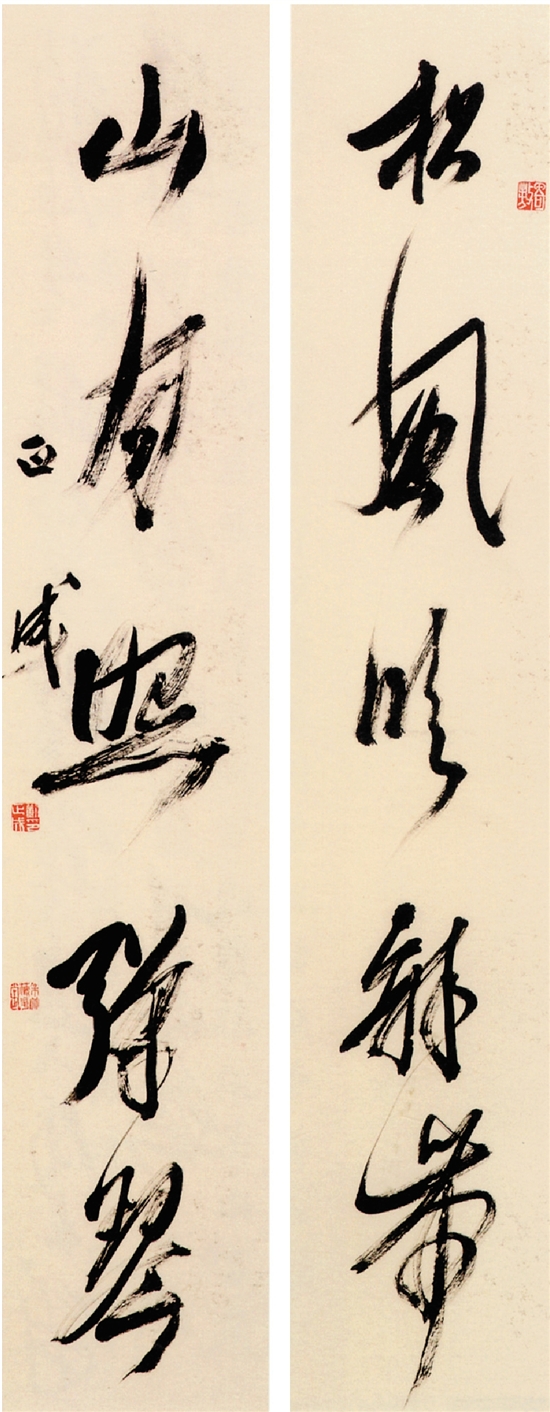 松風吹解帶
山月照彈琴
正成